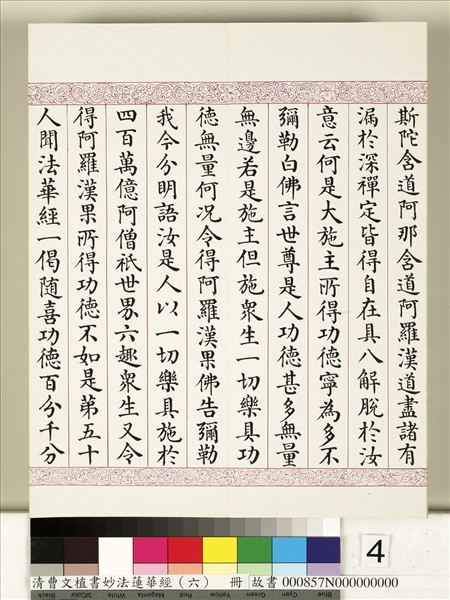 斯陀含道阿那含道阿羅漢道盡諸有
漏於深禪定皆得自在具八解脫於汝
意云何是大施主所得功德寧為多不
彌勒白佛言世尊是人功德甚多無量
無邊若是施主但施眾生一切樂具功
德無量何況令得阿羅漢果佛告彌勒
我今分明語汝是人以一切樂具施於
四百萬億阿僧祇世界六趣眾生又令
得阿羅漢果所得功德不如是第五十
人聞法華經一偈随喜功德百分千分
4
清曹文植書妙法蓮華經（六） 冊 故書 000857N000000000
Blue Cyan Green Yellow Red Magenta White 3/Color Black